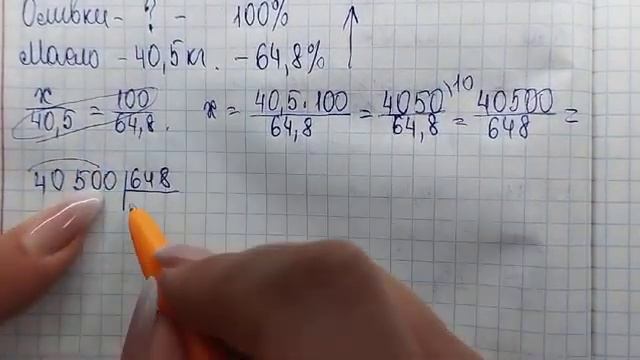 Оливки - ? - 100%
Масло - 40,5 кг. - 64,8%
x/40,5 = 100/64,8. x = 40,5·100/64,8 = 4050/64,8 \10 = 40500/648 =
40500 | 648